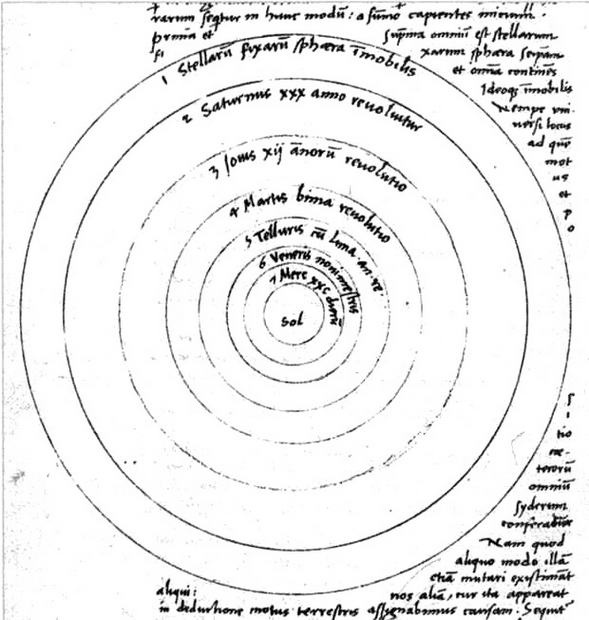 rarum seqtur in hunc modū: a sūmo capientes inicium.
prima et
suprema omniū est stellarum
fi
xarum sphæra seipam
et omīa continēs
Ideoqȝ īmobilis
Nempe vni
uersi locus
ad quē
mot
us
et
p
o
1 Stellarū fixarū sphæra īmobilis
2 Saturnus xxx anno reuoluitur
3 Iouis xij ānorū reuolutio
4 Martis bima reuolutio
5 Telluris cū luna an. re.
6 Veneris nonimestris
7 Merc xxc dierū
Sol
S
i
tio
cæ-
terorū
omniū
syderum
conferatur
Nam quod
aliquo modo illā
etiā mutari existimāt
aliqui:
nos aliā, cur ita appareat
in deductione motus terrestris assignabimus causam. Sequitʳ